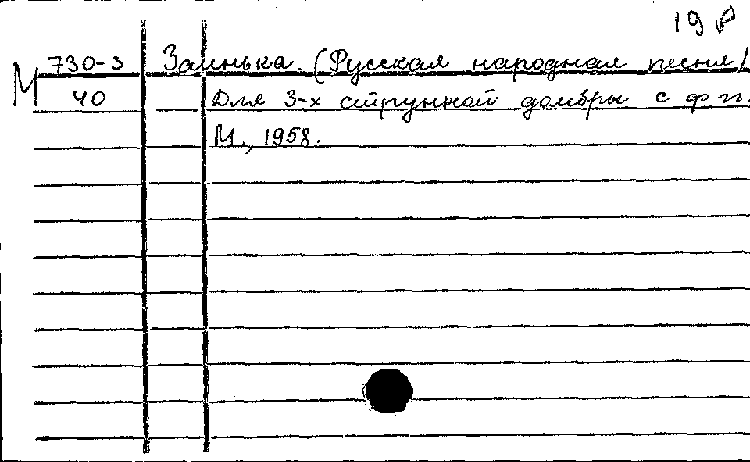 19
М 730-3 Заинька. (Русская народная песня)
40 Для 3-х струнной домбры с фп.
М., 1958.